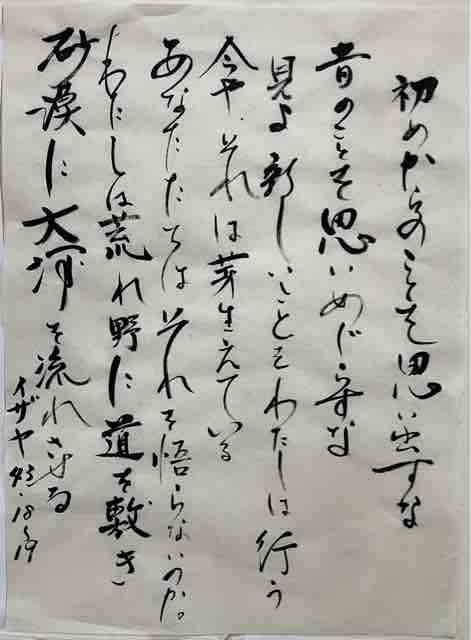 初めからのことを思い出すな
昔のことを思いめぐらすな
見よ、新しいことをわたしは行う
今や、それは芽生えている
あなたたちはそれを悟らないのか。
わたしは荒れ野に道を敷き
砂漠に大河を流れさせる
イザヤ43.18~19